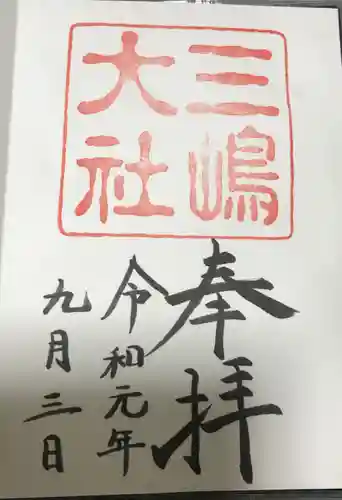 三嶋
大社
奉拝
令和元年
九月三日